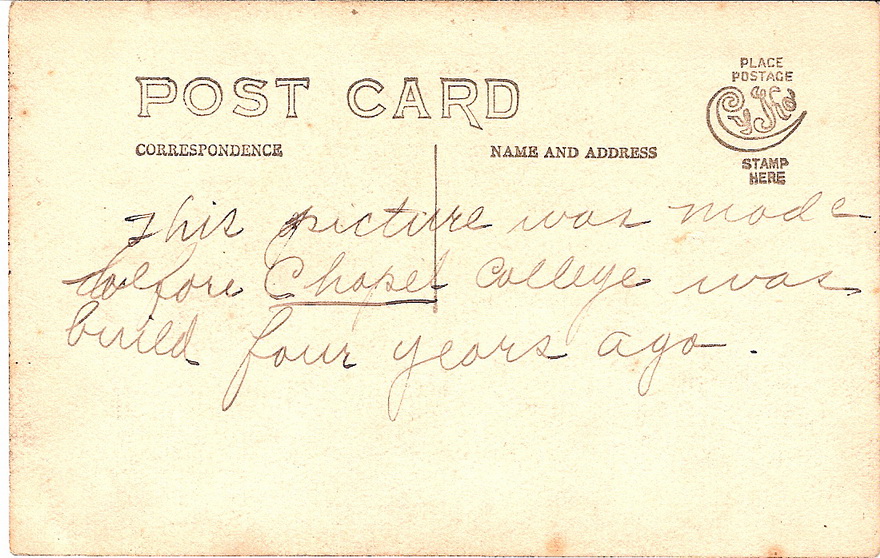 PLACE
POSTAGE
POST CARD
STAMP
HERE
CORRESPONDENCE
NAME AND ADDRESS
This picture was made
before Chapel College was
build four years ago.